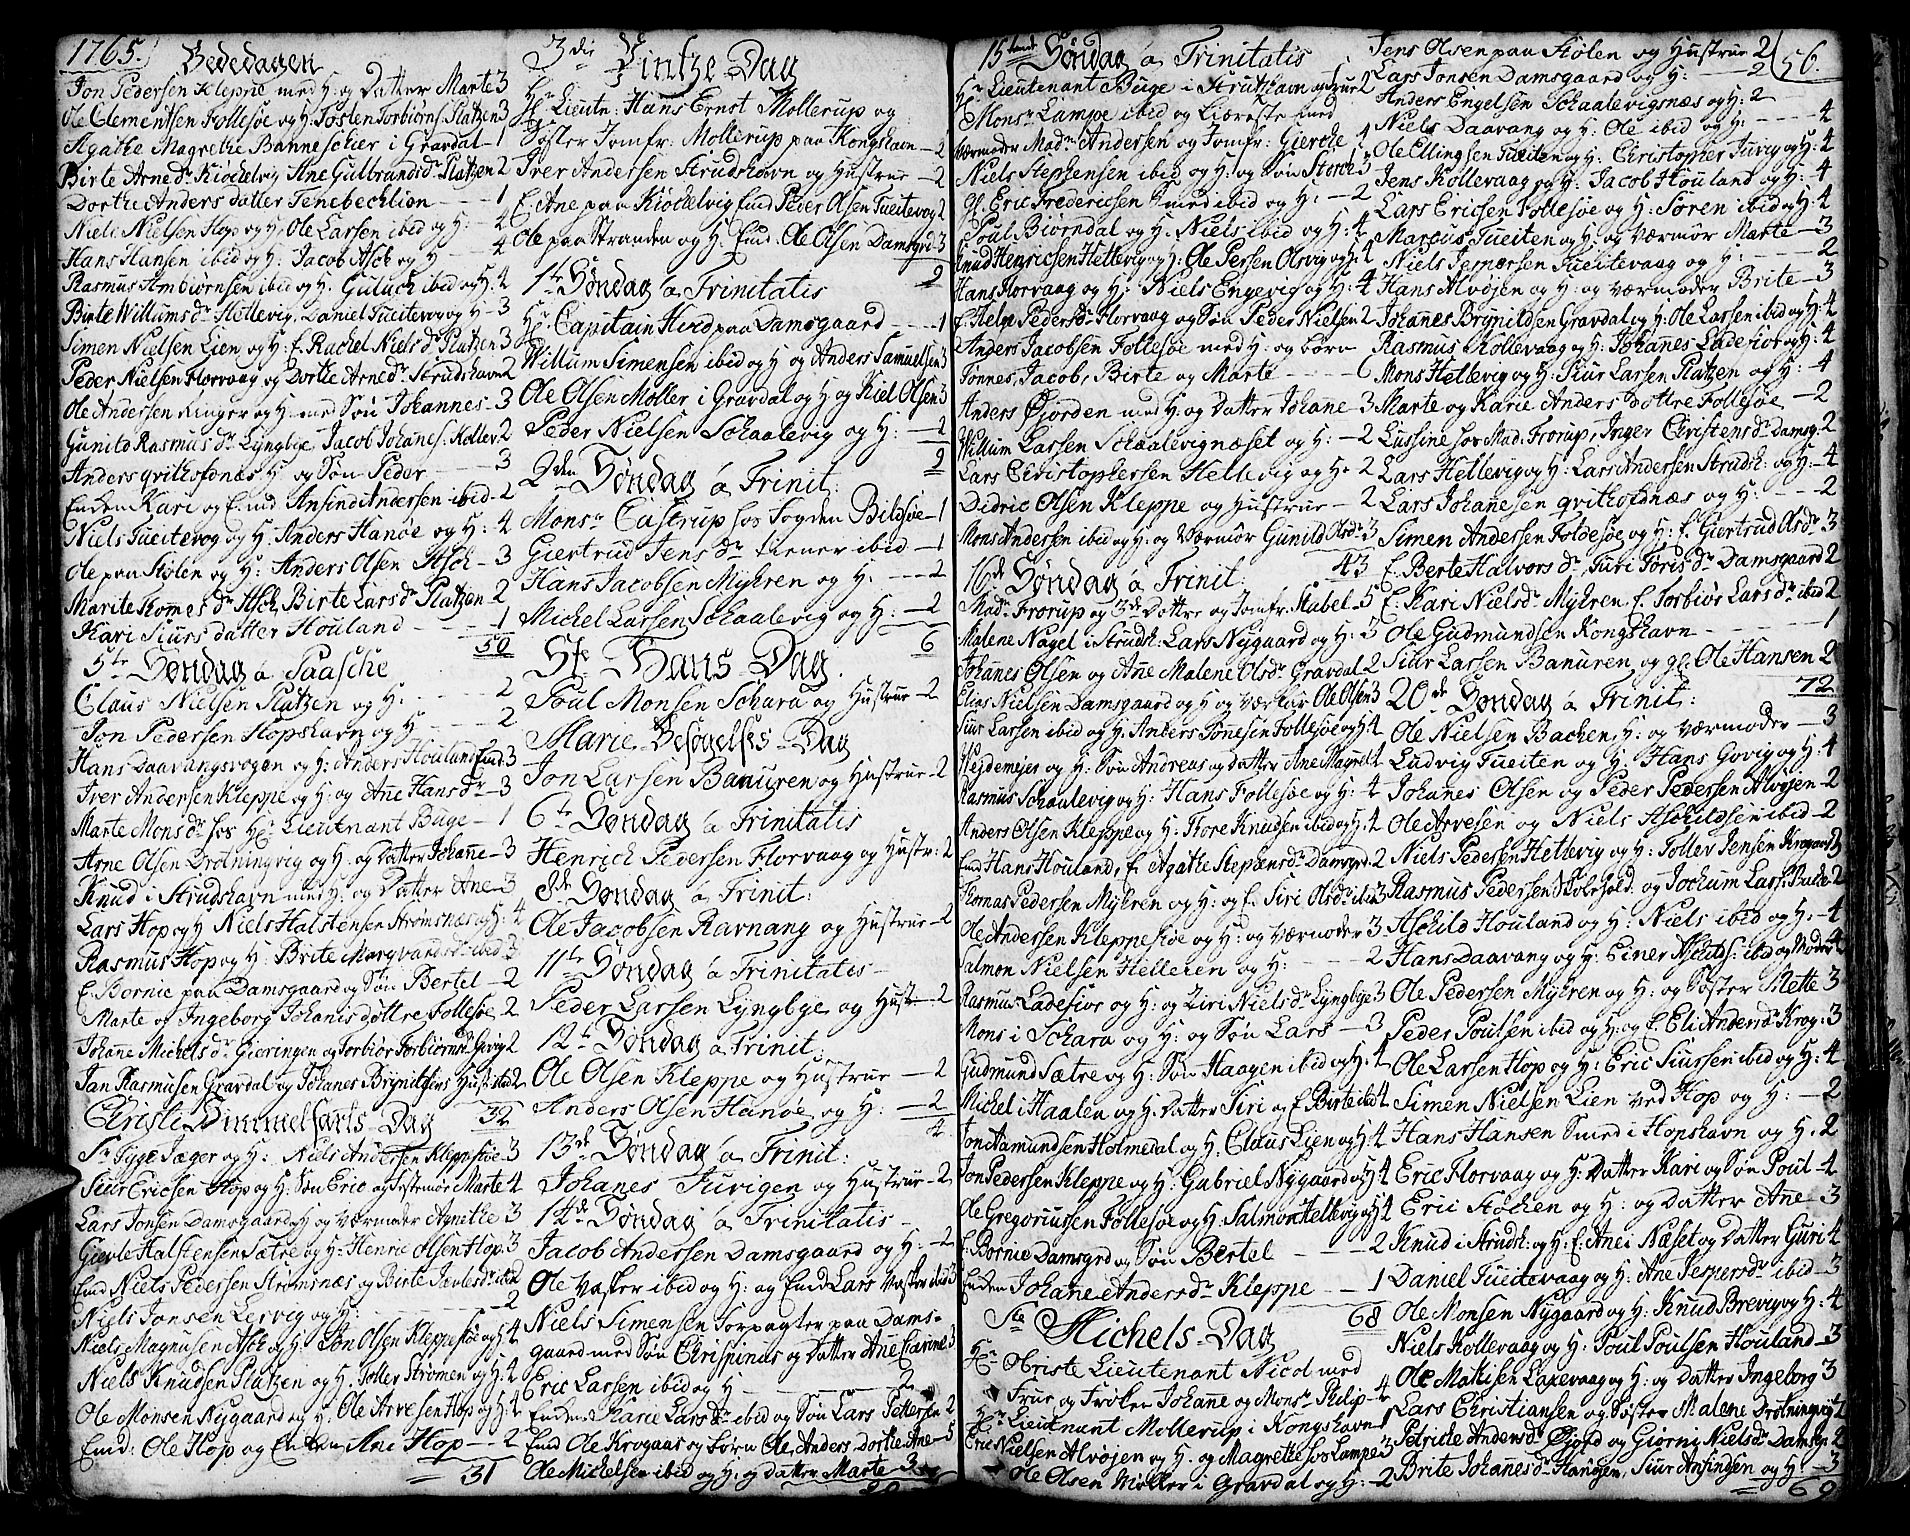 1765.
Bededagen
Jon Pedersen Kleppe med H: og Datter Marte 3
Ole Clementsen Follesøe og H: Tosten Torbiørns. Platzen 3
Agathe Magrethe Banneschier i Gravdal - 1
Birte Arnedr Kiøckelvig Ane Gulbrandsdr Platzen 2
Dorthe Anders datter Tenebechlien - 1
Niels Nielsen Hop og H: Ole Larsen ibid og H: 4
Hans Hansen ibid og H: Jacob Asch og H 4
Rasmus Ambiørnsen ibid og H: Guluch ibid og H: 4
Birte Willumsdr Hettevig, Daniel Tueitevog og H - 3
Simen Nielsen Lien og H: f. Rachel Nielsdr Platzen 3
Peder Nielsen Florvaag og Dorthe Arnedr Strudshavn 2
Ole Andersen Ringer og H: med Søn Johannes - 3
Gunild Rasmusdr Lyngbye Jacob Johanes: Kollev 2
Anders qvithofdnæs H og Søn Peder - 3
Enken Kari og Emd Anfind Anærsen ibid - 2
Niels Tueitevog og H: Anders Hanøe og H: 4
Ole paa Støten og H: Anders Olsen Asch - 3
Marite Thomesdr Asch, Birte Larsdr Platzen - 2
Kari Siurs datter Houland - 1
50
5te Søndag a Paasche
Claus Nielsen Platzen og H: - 2
Jon Pedersen Hopshavn og H - 2
Hans Daavangsvogen og H: Anders Houland Emd: 3
Iver Andersen Kleppe og H: og Ane Hansdr - 3
Marte Monsdr hos Hr Lieutnant Büge - 1
Arne Olsen Drotningvig og H: og Datter Johane - 3
Knud i Strudshavn med H: og Datter Ane - 3
Lars Hop og H Niels Halstensen Strømsnæs og H: 4
Rasmus Hop og H: Brite Marqvardsdr ibid 3
E. Bornic paa Damsgaard og Søn Bertel - 2
Marte og Ingeborg Johanis døttre Follesøe 2
Johane Michelsdr Gieringen og Torbiør Torbiørnsdr Gevig 2
Jan Rasmusen Gravdal og Johanes Brynildsens Hustr ibid 2
Christi Himmelfarts-Dag 32
Sr Tyge Jæger og H: Niels Andersen Kleppesøe 3
Siur Ericsen Hop og H: Søn Eric og Festemøe Marte 4
Lars Jonsen Damsgaard og H og værmoder Agnethe 3
Gierle Halstensen Sætre og H: Henric Olsen Hop 3
Emd Niels Pedersen Strømsnæs og Birte Iverlsdr ibid 2
Niels Jonsen Lervig og H: - 2
Niels Magnusen Asch og H: Jon Olsen Kleppesøe og H: 4
Niels Knudsen Platzen og H: Tollev Strømen og H: 4
Ole Monsen Nygaard og H: Ole Arvesen Hop og H: 4
Emd: Ole Hop og Enken Ane Hop - 2
31
3die Pintze-Dag
Hr Lieutn: Hans Ernst Mollerup og
Søster Jomfr: Mollerup paa Kongshavn - 2
Iver Andersen Strudshavn og Hustrue - 2
E. Ane paa Kiøckelvig Emd Peder Olsen Tueitevog 2
Ole paa Stranden og H: Emd. Ole Olsen Damsgrd 3
9
1te Søndag a Trinitatis
Hr Capitain Hird paa Damsgaard - 1
Willum Simensen ibid og H og Anders Samuelsen 3
Ole Olsen Møller i Gravdal og H og Kiel Olsen 3
Peder Nielsen Schaalevig og H: - 2
9
2den Søndag a Trinit:
Monsr Castrup hos Fogden Bildsøe - 1
Giertrud Jensdr tiener ibid - 1
Hans Jacobsen Myhren og H: - 2
Michel Larsen Schaalevig og H: - 2
6
Ste Hans-Dag.
Poul Monsen Schara og Hustrue - 2
Marie-Besøgelses-Dag
Jon Larsen Banuren og Hustrue - 2
6te Søndag a Trinitatis
Henrich Pedersen Florvaag og Hustr: 2
8de Søndag a Trinit:
Ole Jacobsen Ravnang og Hustrue - 2
11te Søndag a Trinitatis -
Peder Larsen Lyngbye og Hustr - 2
12te Søndag a Trinit:
Ole Olsen Kleppe og Hustrue - 2
Anders Olsen Hanøe, og H: - 2
4
13de Søndag a Trinit:
Johanes Jurigen og Hustrue - 2
14de Søndag a Trinitatis -
Jacob Andersen Damsgaard og H: - 2
Ole Vaster ibid og H: og Emd Lars Vaster ibid 3
Niels Simensen Forpagter paa Dams-
gaard med Søn Chrispinus og Datter Ane Carine 3
Eric Larsen ibid og H - 2
Enken Marie Larsdr ibid og Søn Lars Pettersen 2
Emd Ole Krogaas og børn Ole, Anders, Dorthe, Ane - 5
Ole Michelsen ibid og H: og datter Marte 3
15tende Søndag a Trinitatis
Hr Lieutenant Büge i Strutshavn og Frue 2
Monsr Lampe ibid og Kiereste med
værmoder Madr Andersen og Jomfr: Giercke 4
Niels Stephensen ibid og H: og Søn Storch 3
Gl. Eric Fredericsen Smed ibid og H: - 2
Poul Biørndal og H: Niels ibid og H: 4
Knud Henricsen Hettevig og H: Ole Persen Olsvig og H: 4
Hans Florvaag og H: Niels Engevig og H: 4
E. Helge Pedersdr Florvaag og Søn Peder Nielsen 2
Anders Jacobsen Follesøe med H: og børn
Tønnes, Jacob, Birte og Marte - 6
Anders Øjorden med H: og Datter Johane - 3
Willum Larsen Schaalevignæset og H: - 2
Lars Christophersen Hettevig og H: 2
Didric Olsen Kleppe og Hustrue - 2
Mons Andersen ibid og H: og Værmør Gunild Olsdr 3
43
16de Søndag a Trinit:
Madr Frorup og 3de Dattre og Jomfr. Stabel - 5
Malene Nagel i Strudsh: Lars Nygaard og H: 3
Johanes Olsen og Ane Malene Olsdr Gravdal 2
Elias Nielsen Damsgaard og H og værfar Ole Olsen 3
Siur Larsen ibid og H: Anders Tønesen Follesøe og H: 4
Hejdemejer og H: Søn Andreas og datter Ane Magrete 4
Rasmus Schaalevig og H: Hans Follesøe og H: 4
Anders Olsen Kleppe og H: Tore Knudsen ibid og H: 4
Emd Hans Houland, E. Agathe Stepænsdr Damsgrd 2
Thomas Pedersen Myhren og H: og E. Siri Olsdr ibid 3
Ole Andersen Kleppesøe og H: og værmoder 3
Salmon Nielsen Helleren og H: - 2
Rasmus Ladefior og H: og Ziri Nielsdr Lyngbye 3
Mons i Schara og H: og Søn Lars - 3
Gudmund Sætre og H: Søn Haagen ibid og H: 4
Michel i Haalen og H: Datter Siri og E. Birte ibid 4
Jon Aamundsen Holmedal og H: Claus Lien og H: 4
Jon Pedersen Kleppe og H: Gabriel Nygaard og H 4
Ole Gregoriussen Follesøe og H: Salmon Hettevig og H 4
E. Bornic Damsgrd og Søn Bertel - 2
Enken Johane Andersdr Kleppe - 1
68
Ste Michels-Dag
Hr Obriste Lieutenant Nicol med
Frue og Frøken Johane og Monsr Philip - 4
Hr Lieutnant Mollerup i Kongshavn 1
Eric Nielsen Alvøjen og H: og Magrethe hos Lampe 3
Ole Olsen Møller i Gravdal og H: - 2
56.
Jens Olsen paa Stølen og Hustrue 2
Lars Jonsen Damsgaard og H: - 2
Anders Engelsen Schaalevigsnæs og H: 2
Niels Daavang og H: Ole ibid og H: - 4
Ole Ellingsen Tueiten og H: Christopher Jurig og H: 4
Jens Kollevaag og H: Jacob Houland og H: 4
Lars Ericsen Follesøe og H: Søren ibid og H: 4
Marcus Tueiten og H: og værmør Marte - 3
Niels Jespersen Tueitevaag og H: - 2
Hans Alvøjen og H: og værmoder Brite - 3
Johanes Brynildsen Gravdal og H: Ole Larsen ibid og H: 4
Rasmus Kollevaag og H: Johanes Ladefior og H: 4
Mons Hettevig og H: Siur Larsen Platzen og H: 4
Marte og Karie Anders Døttre Follesøe - 2
Lussine hos Mad. Frorup, Inger Christensdr Damsg: 2
Lars Hettevig og H: Lars Andersen Strudsh: og H: 4
Lars Johanesen qvithofdnæs og H: - 2
Simen Andersen Foldesøe og H: E. Giertrud Olsdr 3
E. Berte Halvorsdr Turi Jorisdr Damsgaard 2
E. Kari Nielsdr Myhren, E. Torbiør Larsdr ibid 2
Ole Gudmundsen Kongshavn - 1
Siur Larsen Banuren, og gl: Ole Hansen 2
72
20de Søndag a Trinit:
Ole Nielsen Bachen, H: og værmoder - 3
Ludvig Tueiten og H: Hans Govig og H: 4
Johanes Olsen og Peder Pedersen Alvøjen - 2
Ole Arvesen og Niels Aschildsen ibid - 2
Niels Pedersen Hettevig og H: Tollev Jensen Krogaas 3
Rasmus Pedersen Skolehold. og Jochum Lars: Bache 2
Aschild Houland og H: Niels ibid og H: - 4
Hans Daavang og H: Einer Aschilds: ibid og Moder 4
Ole Pedersen Myhren og H: og Søster Mette 3
Peder Poulsen ibid og H: og E. Eli Andersdr Krog: 3
Ole Larsen Hop og H: Eric Siursen ibid og H: 4
Simen Nielsen Lien ved Hop og H: - 2
Hans Hansen Smed i Hopshavn og H. 2
Eric Florvaag og H: Datter Kari og Søn Poul - 4
Eric Støchen og H: og Datter Ane 3
Knud i Strudsh: og H: E. Ane i Næset og Datter Guri 4
Daniel Tueitevaag og H: Ane Jespersdr ibid - 3
Ole Monsen Nygaard og H: Knud Brevig og H: 4
Niels Kollevaag og H: Poul Poulsen Houland - 3
Ole Mathisen Laxevaag og H: og datter Ingeborg 3
Lars Christiansen og Søster Malene Drotningvig 2
Petriche Andersdr Øjord og Giørni Nielsdr Damsgr 2
Brite Johanesdr Hanøjen, Siur Anfindsen og H: 3
69